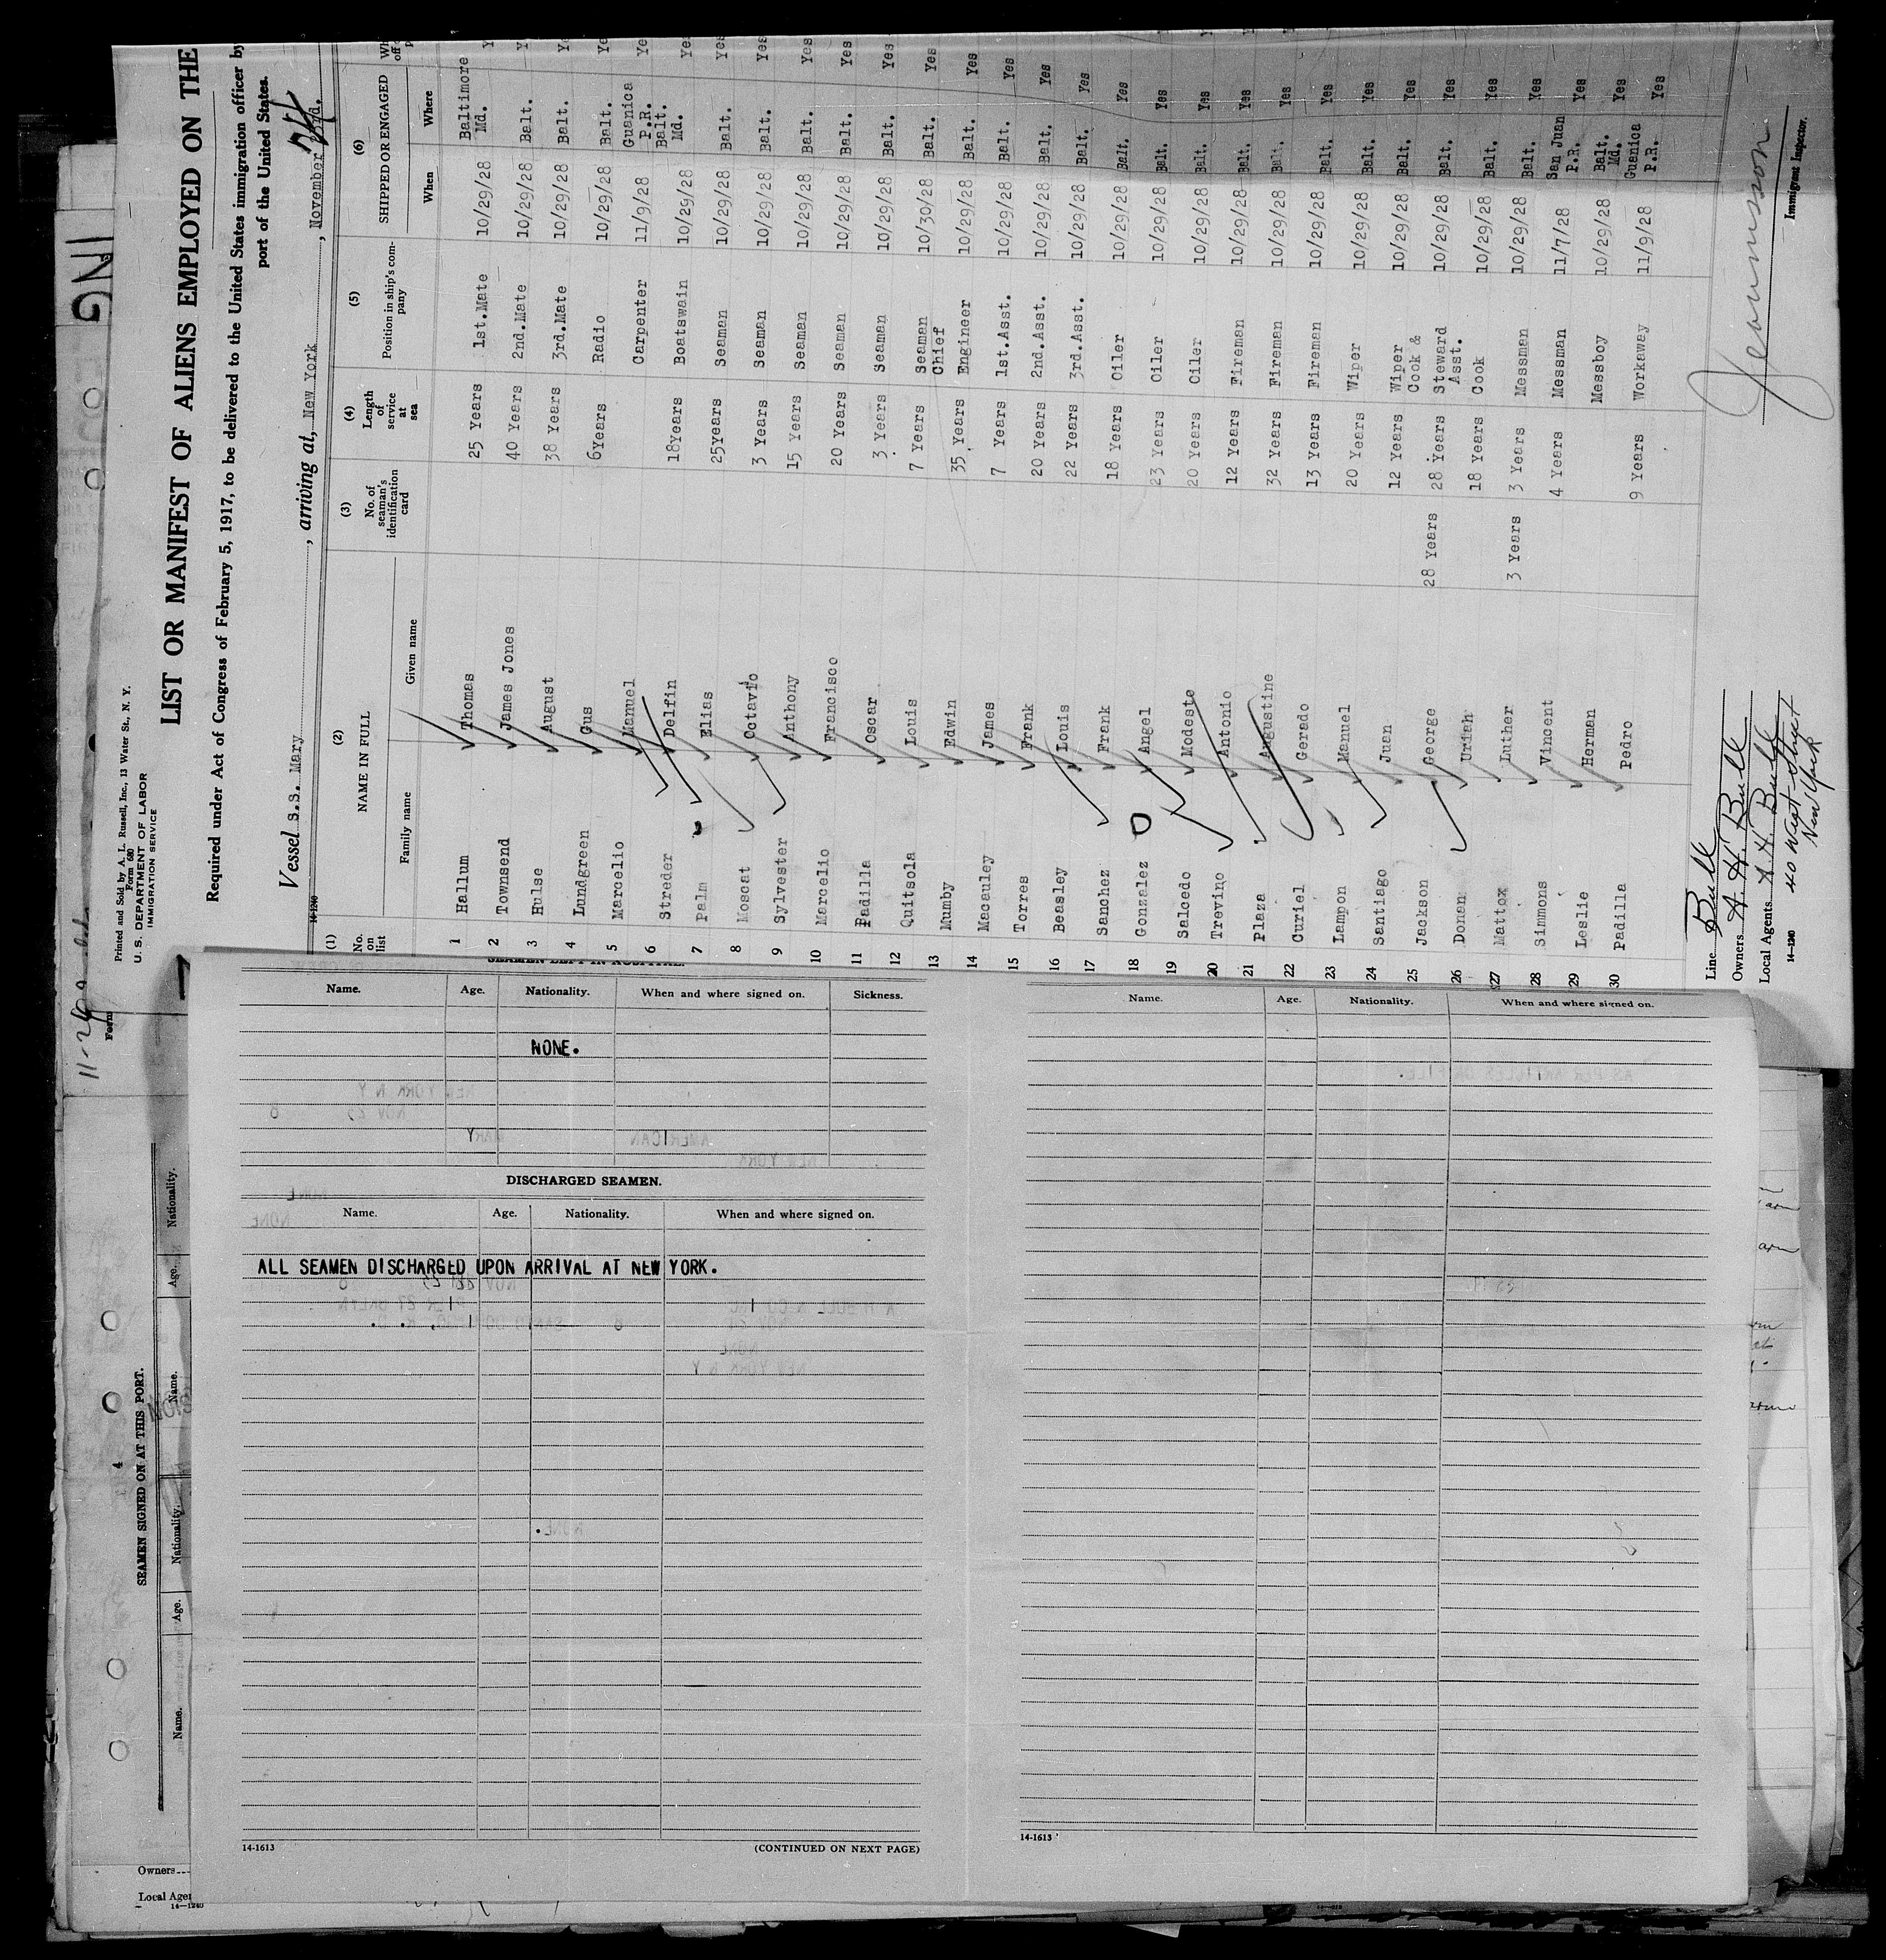 Printed and Sold by A. L. Russell, Inc., 13 Water St., N. Y.
Form 680
U. S. DEPARTMENT OF LABOR
IMMIGRATION SERVICE
LIST OR MANIFEST OF ALIENS EMPLOYED ON THE
Required under Act of Congress of February 5, 1917, to be delivered to the United States immigration officer by
port of the United States.
Vessel S.S. Mary, arriving at, New York, November
14-1240
(1) (2) (3) (4) (5) (6)
No. on list NAME IN FULL No. of seaman's identification card Length of service at sea Position in ship's company SHIPPED OR ENGAGED
Family name Given name When Where
1 Hallum Thomas 25 Years 1st.Mate 10/29/28 Baltimore Md.
2 Townsend James Jones 40 Years 2nd.Mate 10/29/28 Balt.
3 Hulse August 38 Years 3rd.Mate 10/29/28 Balt.
4 Lundgreen Gus 6Years Radio 10/29/28 Balt.
5 Marcelio Manuel Carpenter 11/9/28 Guanica P.R.
6 Streder Delfin 18Years Boatswain 10/29/28 Balt. Md. Yes
7 Palm Elias 25years Seaman 10/29/28 Balt. Yes
8 Moscat Octavio 3 Years Seaman 10/29/28 Balt. Yes
9 Sylvester Anthony 15 Years Seaman 10/29/28 Balt. Yes
10 Marcelio Francisco 20 Years Seaman 10/29/28 Balt. Yes
11 Padilla Oscar 3 Years Seaman 10/29/28 Balt. Yes
12 Quitsola Louis 7 Years Seaman 10/30/28 Balt. Yes
13 Mumby Edwin 35 Years Chief Engineer 10/29/28 Balt. Yes
14 Macauley James 7 Years 1st.Asst. 10/29/28 Balt. Yes
15 Torres Frank 20 Years 2nd.Asst. 10/29/28 Balt. Yes
16 Beasley Louis 22 Years 3rd.Asst. 10/29/28 Balt. Yes
17 Sanchez Frank 18 Years Oiler 10/29/28 Balt. Yes
18 Gonzalez Angel 23 Years Oiler 10/29/28 Balt. Yes
19 Salcedo Modesto 20 Years Oiler 10/29/28 Balt. Yes
20 Trevino Antonio 12 Years Fireman 10/29/28 Balt. Yes
21 Plaza Augustine 32 Years Fireman 10/29/28 Balt. Yes
22 Curiel Geredo 13 Years Fireman 10/29/28 Balt. Yes
23 Lampon Manuel 20 Years Wiper 10/29/28 Balt. Yes
24 Santiago Juan 12 Years Wiper 10/29/28 Balt. Yes
25 Jackson George 28 Years 28 Years Cook & Steward 10/29/28 Balt. Yes
26 Donan Uriah 18 Years Asst. Cook 10/29/28 Balt. Yes
27 Mattox Luther 3 Years 3 Years Messman 10/29/28 Balt. Yes
28 Simmons Vincent 4 Years Messman 11/7/28 San Juan P.R. Yes
29 Leslie Herman Messboy 10/29/28 Balt. Md. Yes
30 Padilla Pedro 9 Years Workaway 11/9/28 Guanica P.R. Yes
Line Bull
Owners A. H. Bull
Local Agents A. H. Bull
40 West Street
New York
14-1240
Immigrant Inspector.
SEAMEN LEFT IN HOSPITAL.
Name. Age. Nationality. When and where signed on. Sickness.
NONE.
DISCHARGED SEAMEN.
Name. Age. Nationality. When and where signed on.
ALL SEAMEN DISCHARGED UPON ARRIVAL AT NEW YORK.
14-1613 (CONTINUED ON NEXT PAGE)
Name. Age. Nationality. When and where signed on.
14-1613
4
SEAMEN SIGNED ON AT THIS PORT.
Name. Age. Nationality. Name. Age. Nationality.
Owners
Local Agen
14-1240